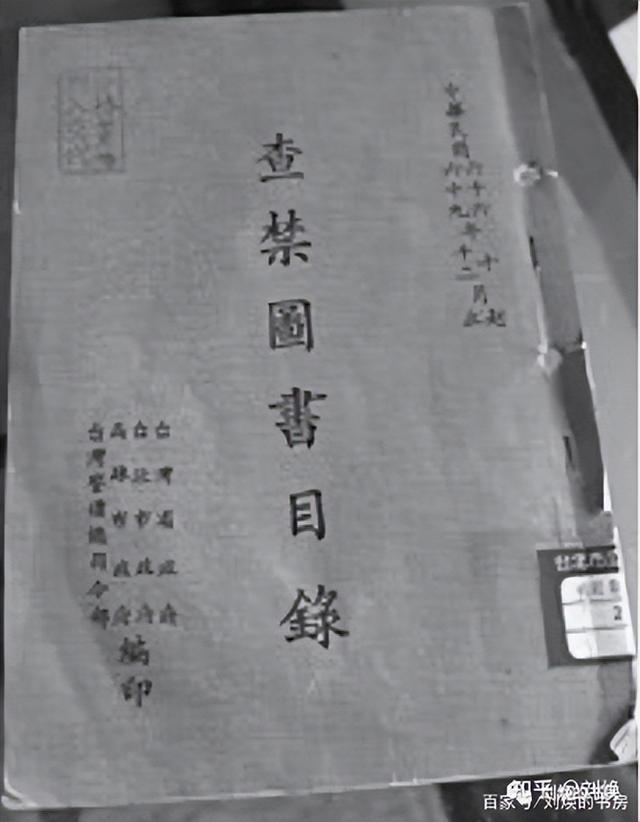 中華民國
六十六年十月起
六十九年十二月止
查禁圖書目錄
台灣省政府
台北市政府
高雄市政府
台灣警備總司令部
編印
2
知乎 @刘焕
百家号/刘焕的书房